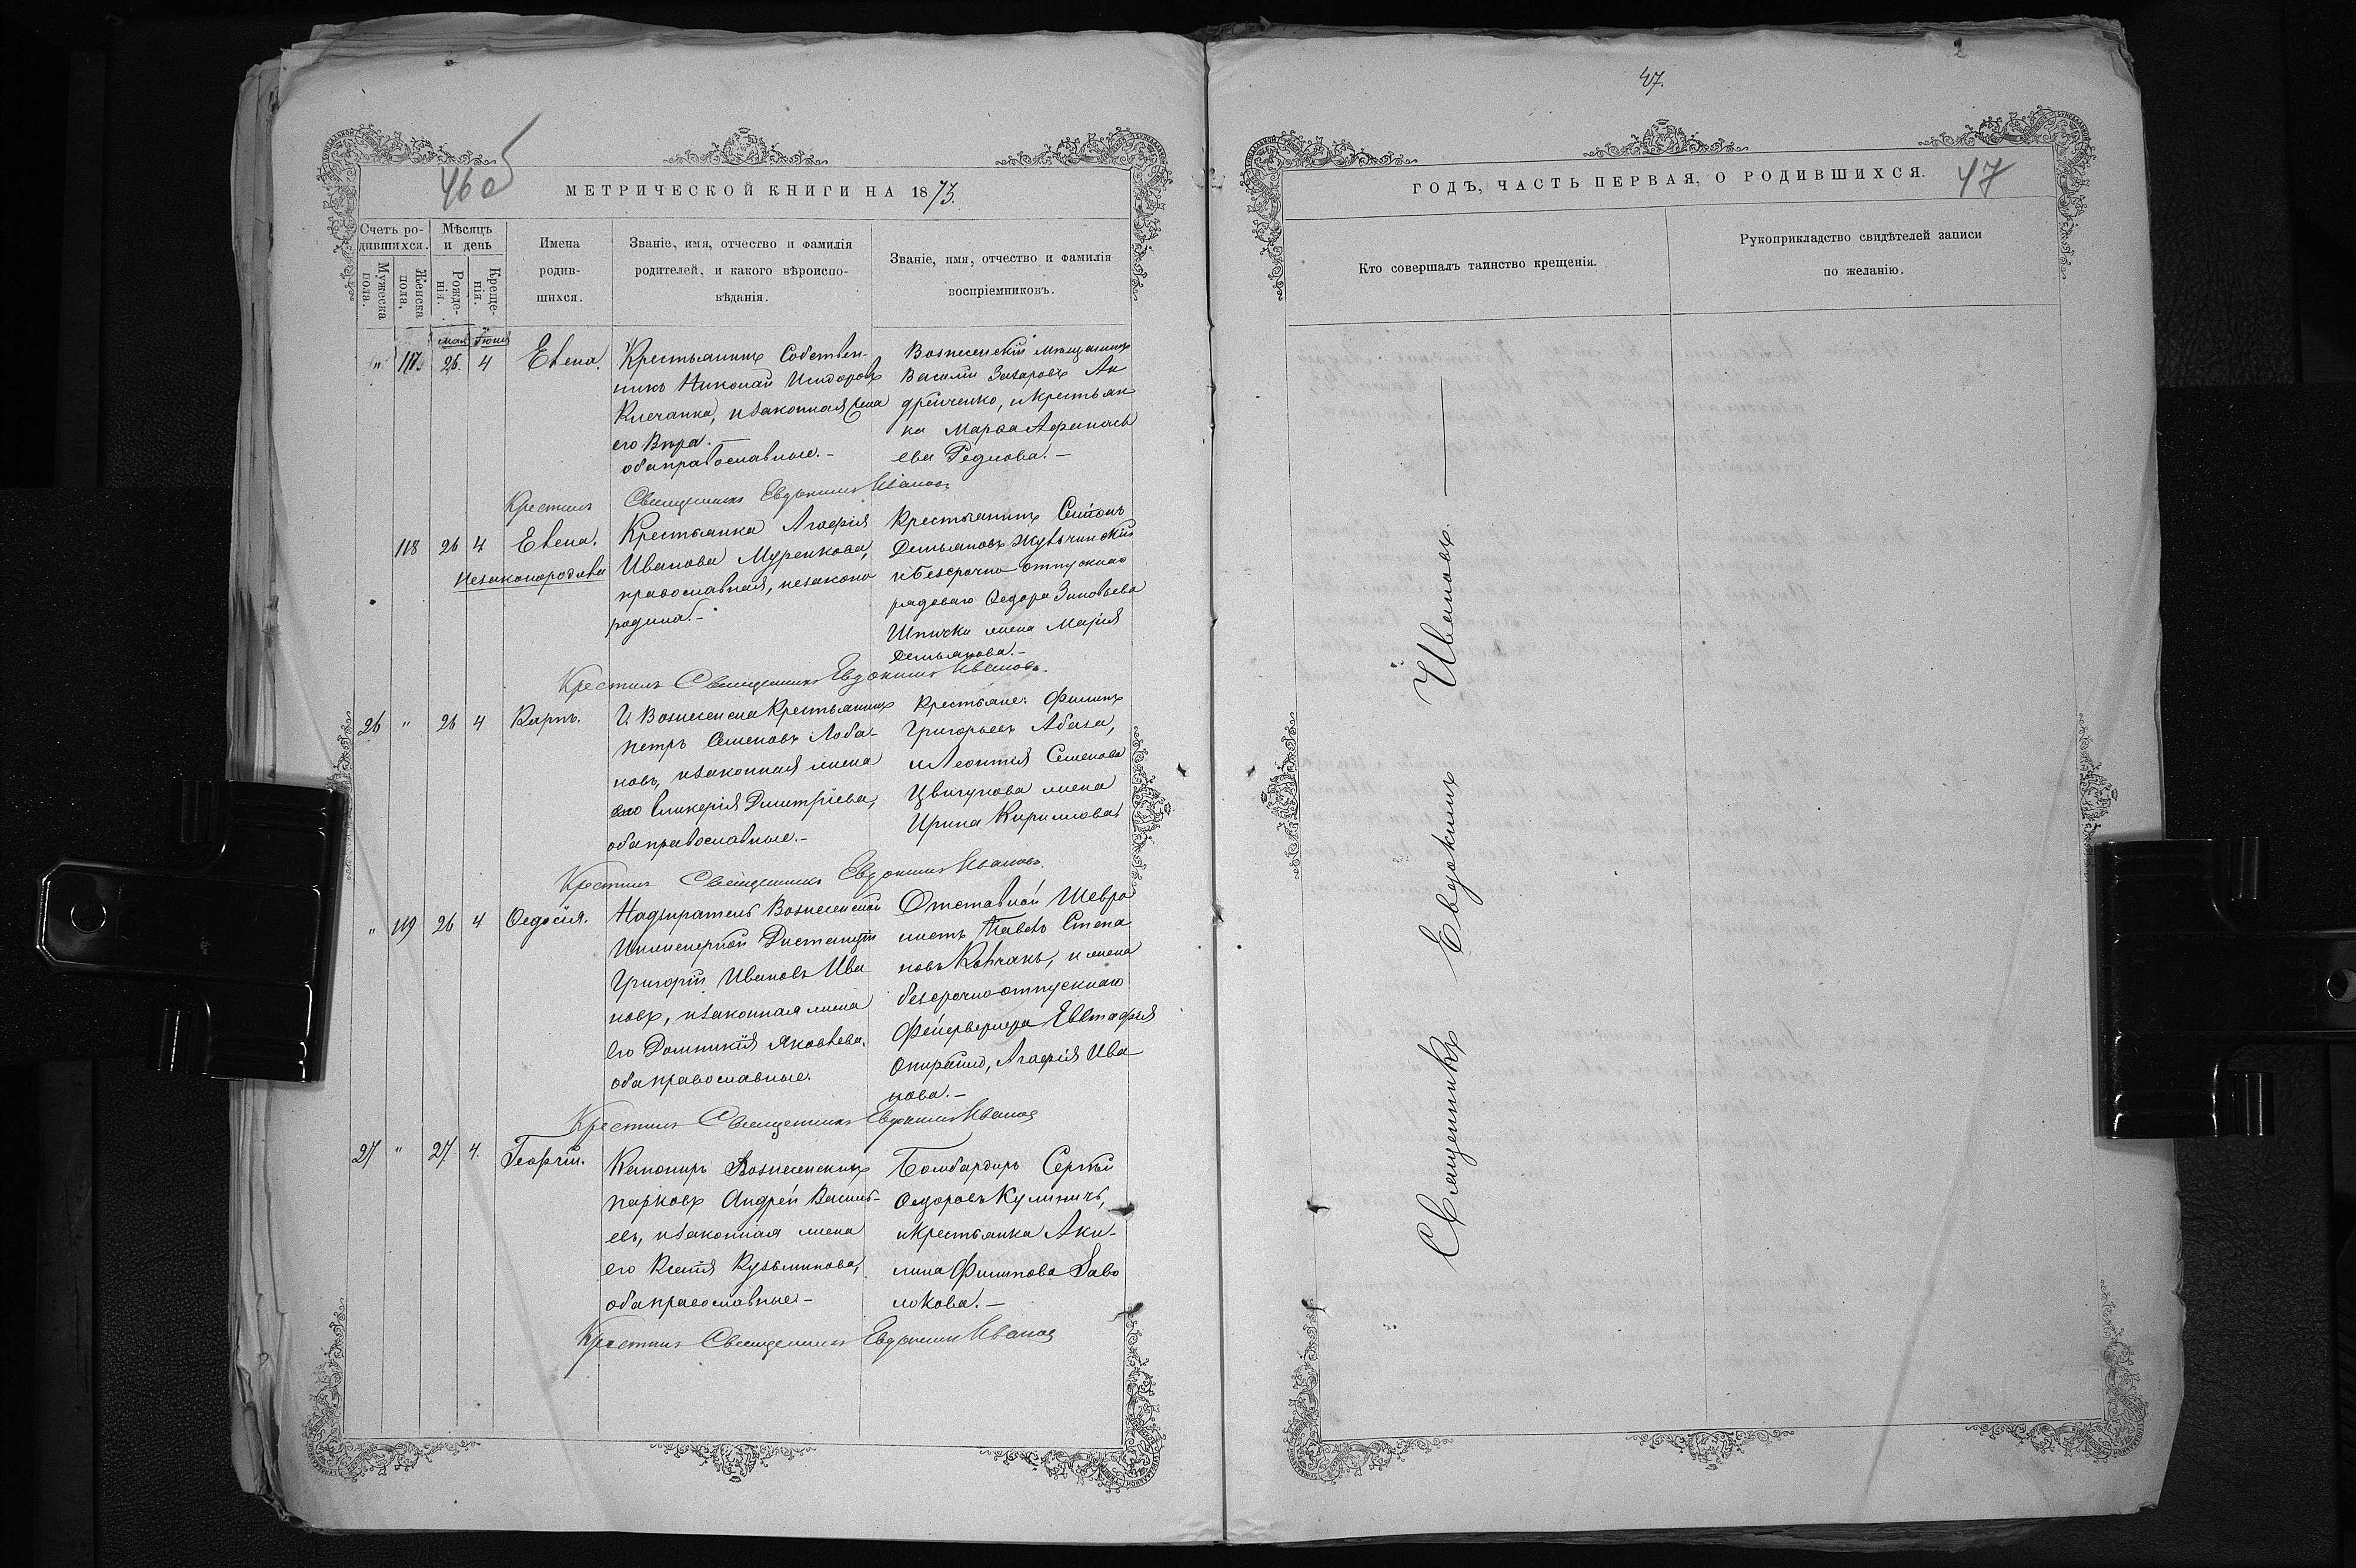 46 об
МЕТРИЧЕСКОЙ КНИГИ НА 1873.
Счетъ ро-
дившихся.
Мужеска пола.
Женска пола.
Мѣсяцъ
и день
Рожде-
нія.
Креще-
нія.
Имена
родив-
шихся.
Званіе, имя, отчество и фамилія
родителей, и какого вѣроиспо-
вѣданія.
Званіе, имя, отчество и фамилія
воспріемниковъ.
мая Іюня
" 117 26. 4 Елена.
Крестьянинъ Собствен-
никъ Николай Исидоровъ
Клечанка, изаконная жена
его Вѣра.
обаправославные.-
Вознесенскій мѣщанинъ
Василій Захаровъ Ан
дрейченко, и крестьян
ка Марѳа Афанась
ева
Крестилъ Священникъ Евдокимъ Ивановъ
118 26 4 Елена.
Незаконородзена
Крестьянка Агафія
Иванова Муренкова,
православная, незаконо
родила.-
Крестьянинъ Семіонъ
Демьяновъ
и Безсрочно-отпускнаго
рядоваго Ѳедора Зиновьева
Шпички жена Марія
Демьянова.-
Крестилъ Священникъ Евдокимъ Ивановъ.
26 " 26 4 Карпъ.
Г. Вознесенска Крестьянинъ
Петръ Семеновъ Лоба-
новъ, изаконная жена
его Гликерія Дмитріева,
обаправославные.-
Крестьяне: Филипъ
Григорьевъ Абаза,
и Леонтія Семенова
Цвигунова жена
Ирина Кирилова.
Крестилъ Священникъ Евдокимъ Ивановъ
" 119 26 4 Ѳедосія.
Надзиратель Вознесенской
Инженерной Дистанціи
Григорій Ивановъ Ива
новъ, изаконная жена
Его Домникія Яковлева.
обаправославные.
Отставной Шевро
нистъ Павелъ Степа
новъ Ковчакъ, и жена
безсрочно-отпускнаго
Фейерверкера Евстафія
Агафія Ива
нова.-
Крестилъ Священникъ Евдокимъ Ивановъ
27 " 27 4. Георгій.
Канониръ Вознесенскихъ
парковъ Андрей Василь-
евъ, изаконная жена
его Ксенія Кузьминова,
обаправославные.-
Бомбардиръ Сергѣй
Ѳедоровъ Кулиничъ,
и Крестьянка Аки-
лина Филипова Заво
локова.-
Крестилъ Священникъ Евдокимъ Ивановъ
47.
2
ГОДЪ, ЧАСТЬ ПЕРВАЯ, О РОДИВШИХСЯ.
47
Кто совершалъ таинство крещенія.
Рукоприкладство свидѣтелей записи
по желанію.
Священникъ Евдокимъ Ивановъ.